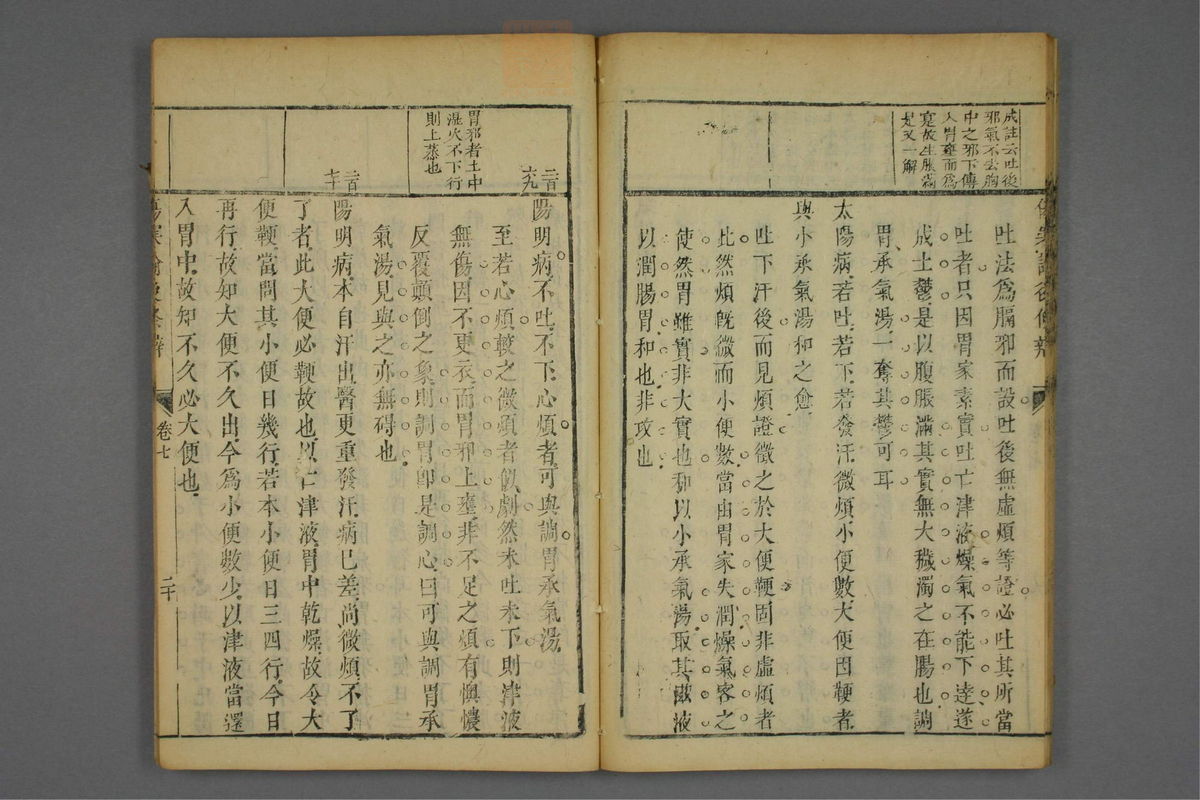 成註云吐後
邪氣不去胸
中之邪下傳
入胃壅而爲
寔故生脹滿
是又一解
吐法爲膈邪而設吐後無虛煩等證必吐其所當
吐者只因胃家素實吐亡津液燥氣不能下達遂
成土鬱是以腹脹滿其實無大穢濁之在腸也調
胃承氣湯一奪其鬱可耳
太陽病若吐若下若發汗微煩小便數大便因鞕者
與小承氣湯和之愈
吐下汗後而見煩證徵之於大便鞕固非虛煩者
比然煩旣微而小便數當由胃家失潤燥氣客之
使然胃雖實非大實也和以小承氣湯取其滋液
以潤腸胃和也非攻也
二百
六九
陽明病不吐不下心煩者可與調胃承氣湯
胃邪者土中
濕火不下行
則上蒸也
至若心煩較之微煩者似劇然未吐未下則津液
無傷因不更衣而胃邪上壅非不足之煩有懊憹
反覆顛倒之象則調胃卽是調心曰可與調胃承
氣湯見與之亦無碍也
二百
七十
陽明病本自汗出醫更重發汗病已差尚微煩不了
了者此大便必鞕故也以亡津液胃中乾燥故令大
便鞕當問其小便日幾行若本小便日三四行今日
再行故知大便不久出今爲小便數少以津液當還
入胃中故知不久必大便也
傷寒論後條辨
卷七
二十